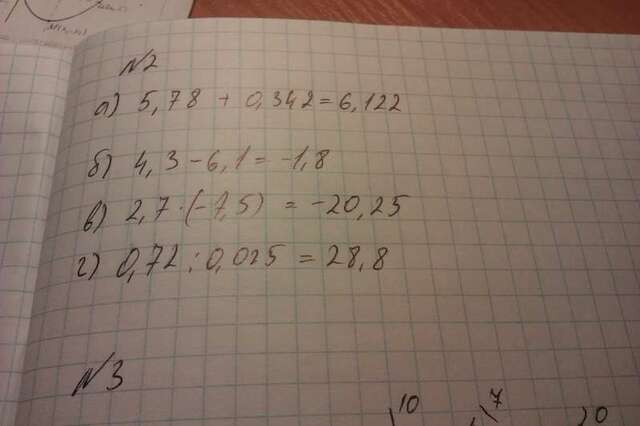 №2
а) 5,78 + 0,342 = 6,122
б) 4,3 - 6,1 = -1,8
в) 2,7 · (-7,5) = -20,25
г) 0,72 : 0,025 = 28,8
№3
10 7 20